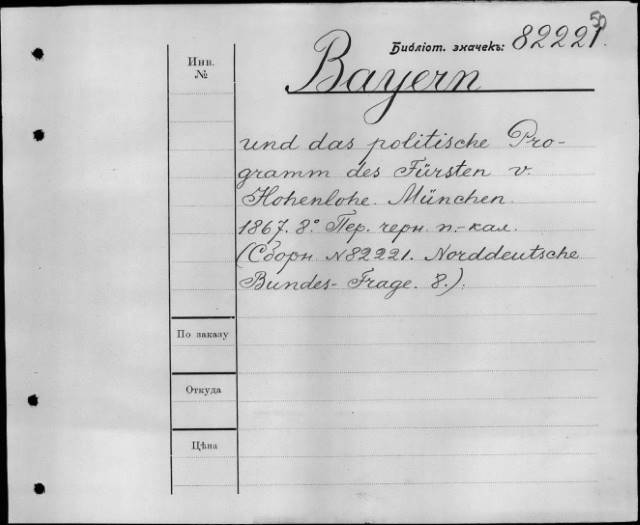 50
Библіот. значекъ: 82221.
Инв.
№
Bayern
und das politische Pro-
gramm des Fürsten v.
Hohenlohe. München.
1867. 8.° Пер. черн. п.-кал.
(Сборн. N 82221. Norddeutsche
Bundes-Frage. 8.).
По заказу
Откуда
Цѣна